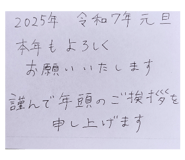 2025年 令和7年 元旦
本年もよろしく
お願いいたします
謹んで年頭のご挨拶を
申し上げます